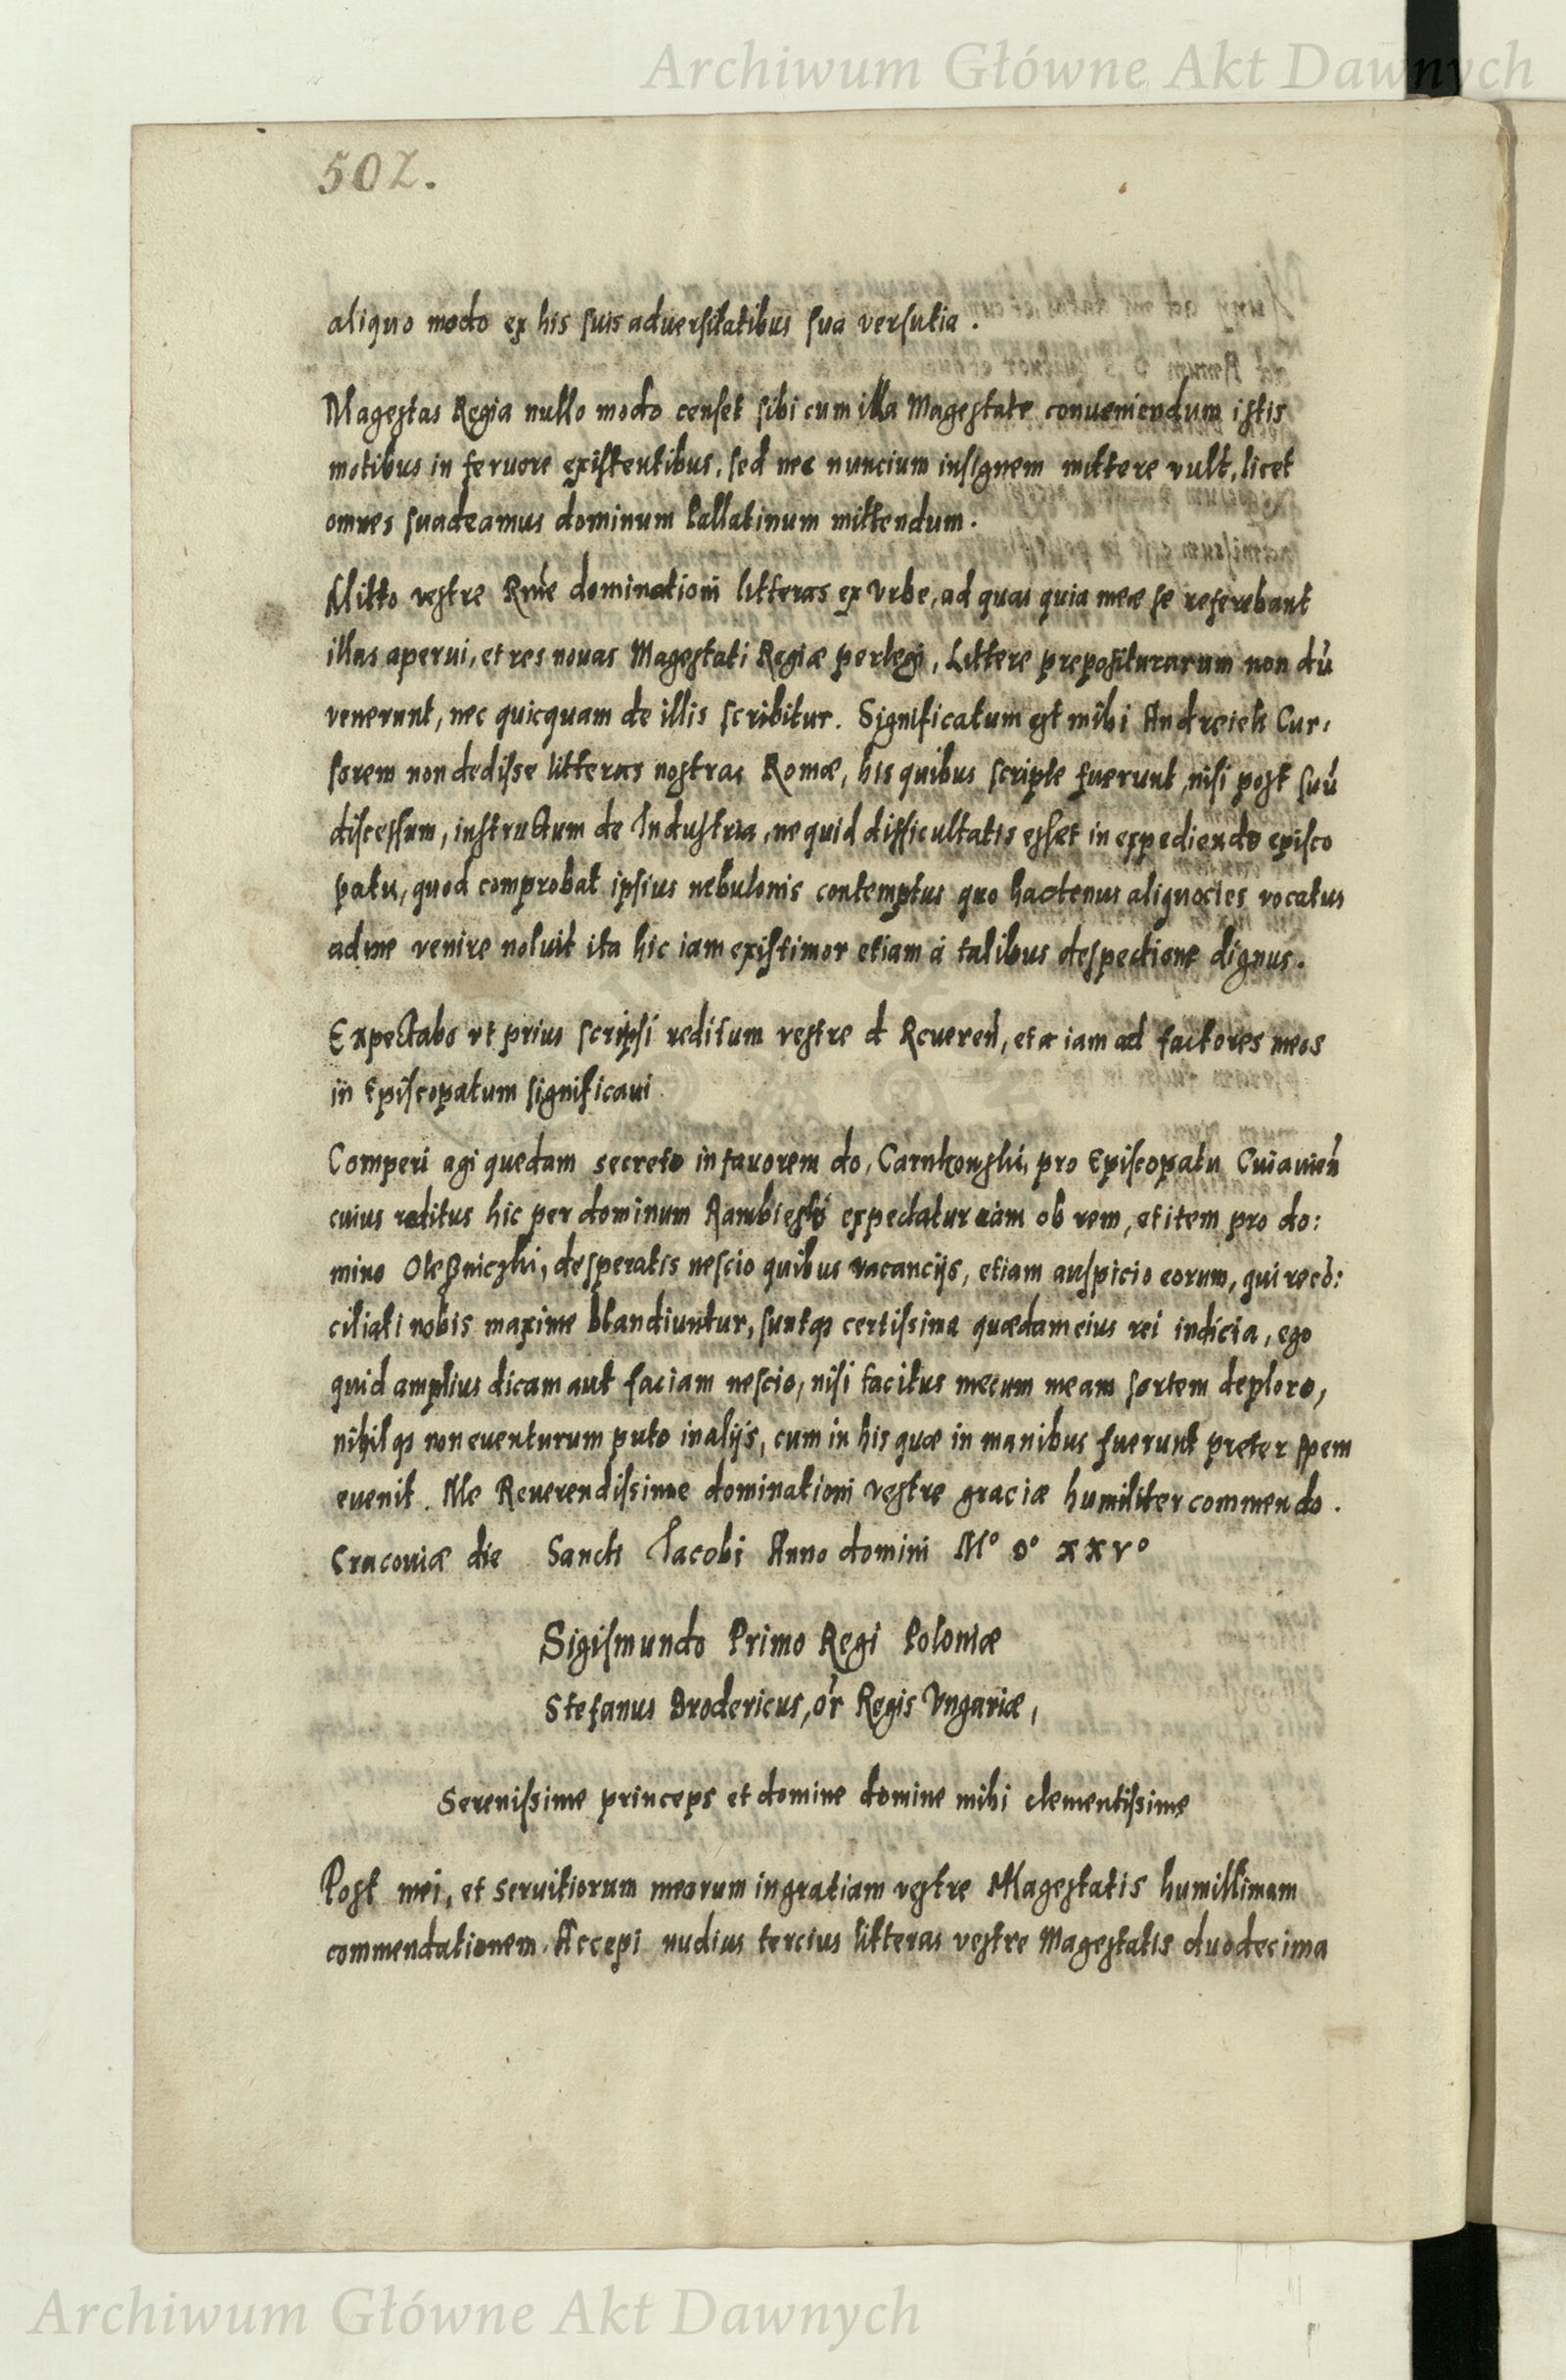 Archiwum Główne Akt Dawnych
502.
aliquo modo ex his suis aduersitatibus sua versutia.
Magestas Regia nullo modo censet sibi cum illa Magestate conueniendum istis
motibus in feruore existentibus, sed nec nuncium insignem mittere vult, licet
omnes suadeamus dominum Pallatinum mittendum.
Mitto vestre Rme dominationi litteras ex Vrbe, ad quas quia meæ se referebant
illas aperui, et res nouas Magestati Regiæ perlegi, Littere prepositurarum non dū
venerunt, nec quicquam de illis scribitur. Significatum est mihi Andreieh Cur,
sorem non dedisse litteras nostras Romæ, his quibus scripte fuerunt, nisi post suū
discessum, instructum de Industria, ne quid difficultatis esset in expediendo episco
patu, quod comprobat ipsius nebulonis contemptus quo hactenus aliquocies vocatus
ad me venire noluit ita hic iam existimor etiam á talibus despectione dignus.
Expectabo vt prius scripsi reditum vestre d Reueren, et iam ad factores meos
in Episcopatum significaui
Comperi agi quedam secreto in fauorem do, Carnkowski, pro Episcopatu Cuiauien
cuius reditus hic per dominum expectatur eam ob rem, et item pro do:
mino Oleßniczki, desperatis nescio quibus vacancijs, etiam auspicio eorum, qui recō:
ciliati nobis maxime blandiuntur, suntqȝ certissima quædam eius rei indicia, ego
quid amplius dicam aut faciam nescio, nisi tacitus mecum meam sortem deploro,
nihilqȝ non euenturum puto in alijs, cum in his quæ in manibus fuerunt preter spem
euenit. Me Reuerendissime dominationi vestre graciæ humiliter commendo.
Cracouiæ die Sancti Jacobi Anno domini Mº Dº xxvº
Sigismundo Primo Regi Poloniæ
Stefanus Brodericus, or Regis Vngariæ,
Serenissime princeps et domine domine mihi clementissime
Post mei, et seruitiorum meorum in gratiam vestre Magestatis humillimam
commendationem. Accepi nudius tercius litteras vestre Magestatis duodecima
Archiwum Główne Akt Dawnych